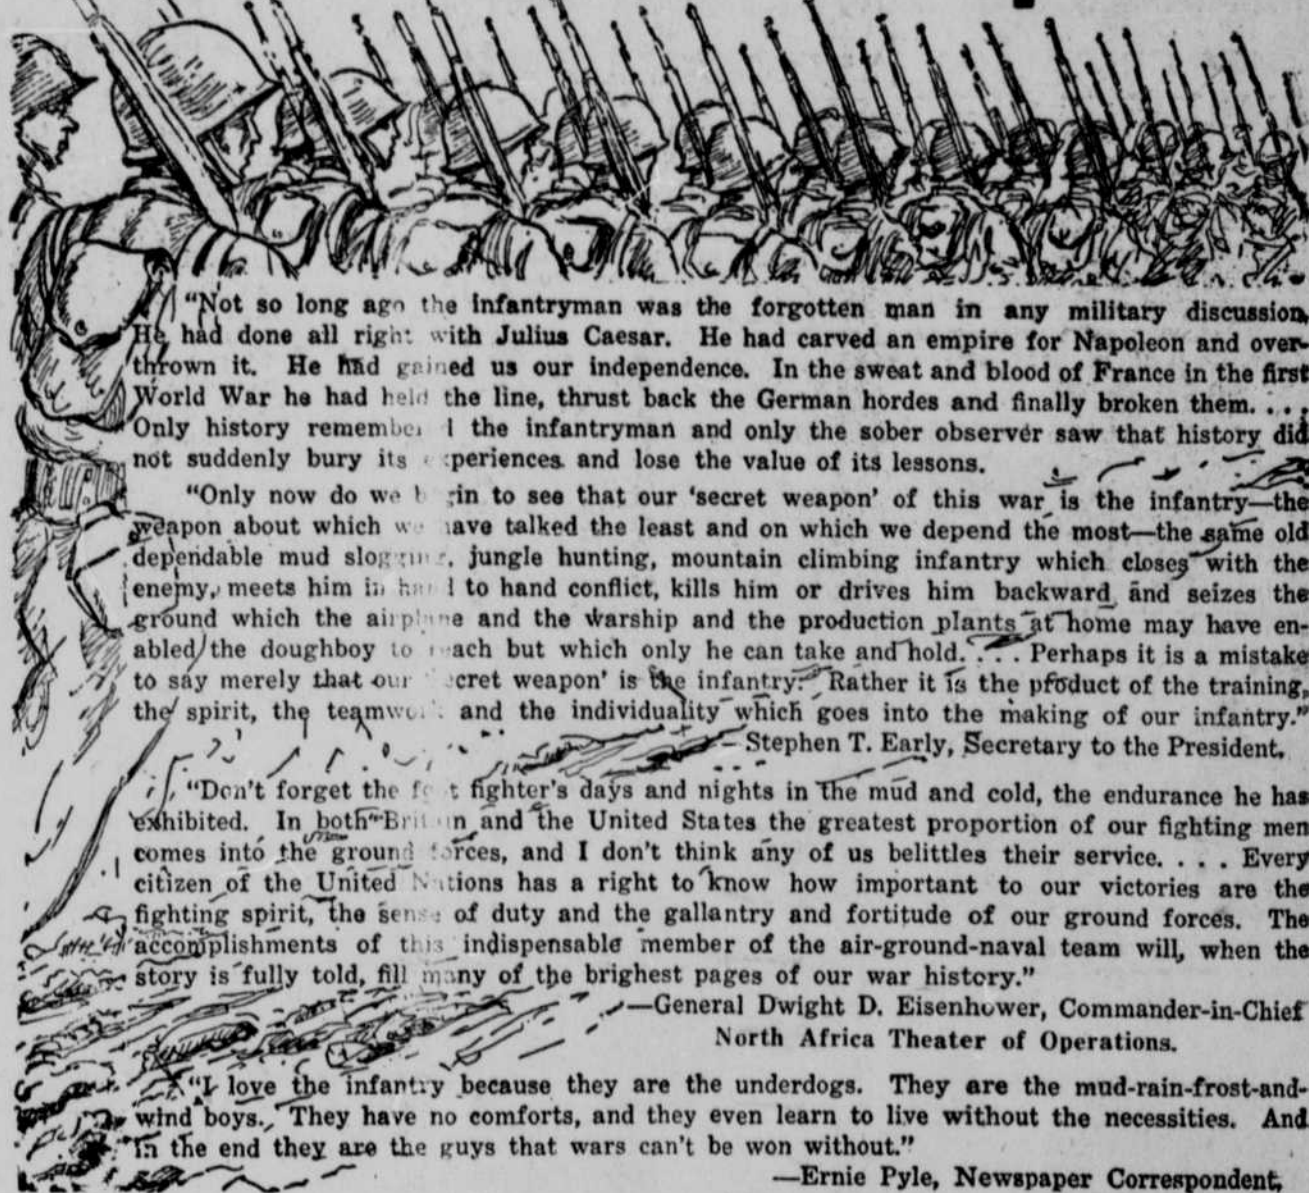 "Not so long ago the infantryman was the forgotten man in any military discussion.
He had done all right with Julius Caesar. He had carved an empire for Napoleon and over-
thrown it. He had gained us our independence. In the sweat and blood of France in the first
World War he had held the line, thrust back the German hordes and finally broken them. . . .
Only history remembered the infantryman and only the sober observer saw that history did
not suddenly bury its experiences and lose the value of its lessons.
"Only now do we begin to see that our 'secret weapon' of this war is the infantry—the
weapon about which we have talked the least and on which we depend the most—the same old
dependable mud slogging, jungle hunting, mountain climbing infantry which closes with the
enemy, meets him in hand to hand conflict, kills him or drives him backward and seizes the
ground which the airplane and the warship and the production plants at home may have en-
abled the doughboy to reach but which only he can take and hold. . . . Perhaps it is a mistake
to say merely that our 'secret weapon' is the infantry. Rather it is the product of the training,
the spirit, the teamwork and the individuality which goes into the making of our infantry."
—Stephen T. Early, Secretary to the President.
"Don't forget the foot fighter's days and nights in the mud and cold, the endurance he has
exhibited. In both Britain and the United States the greatest proportion of our fighting men
comes into the ground forces, and I don't think any of us belittles their service. . . . Every
citizen of the United Nations has a right to know how important to our victories are the
fighting spirit, the sense of duty and the gallantry and fortitude of our ground forces. The
accomplishments of this indispensable member of the air-ground-naval team will, when the
story is fully told, fill many of the brighest pages of our war history."
—General Dwight D. Eisenhower, Commander-in-Chief
North Africa Theater of Operations.
"I love the infantry because they are the underdogs. They are the mud-rain-frost-and-
wind boys. They have no comforts, and they even learn to live without the necessities. And
in the end they are the guys that wars can't be won without."
—Ernie Pyle, Newspaper Correspondent.